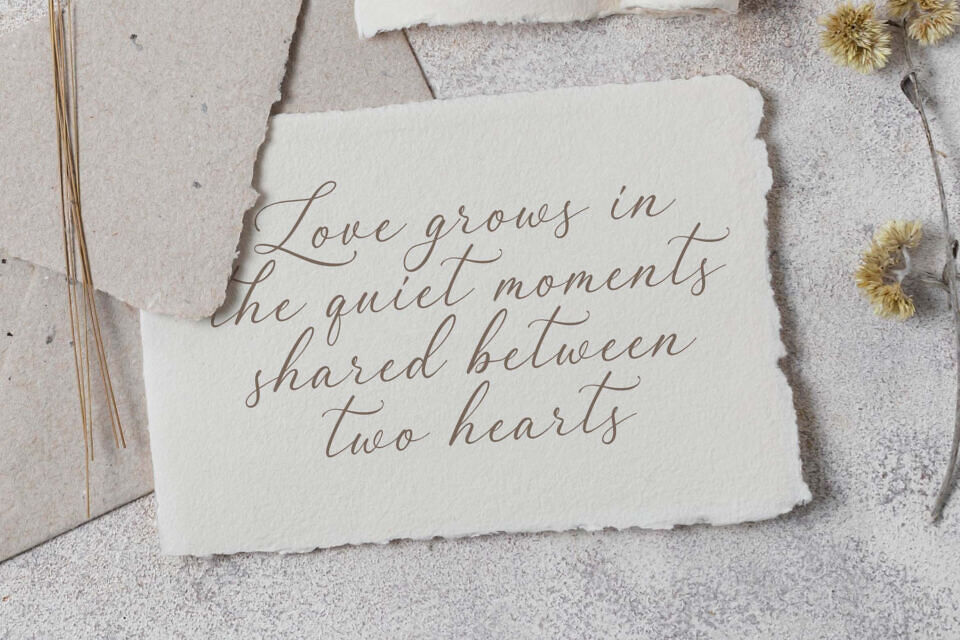 Love grows in
the quiet moments
shared between
two hearts